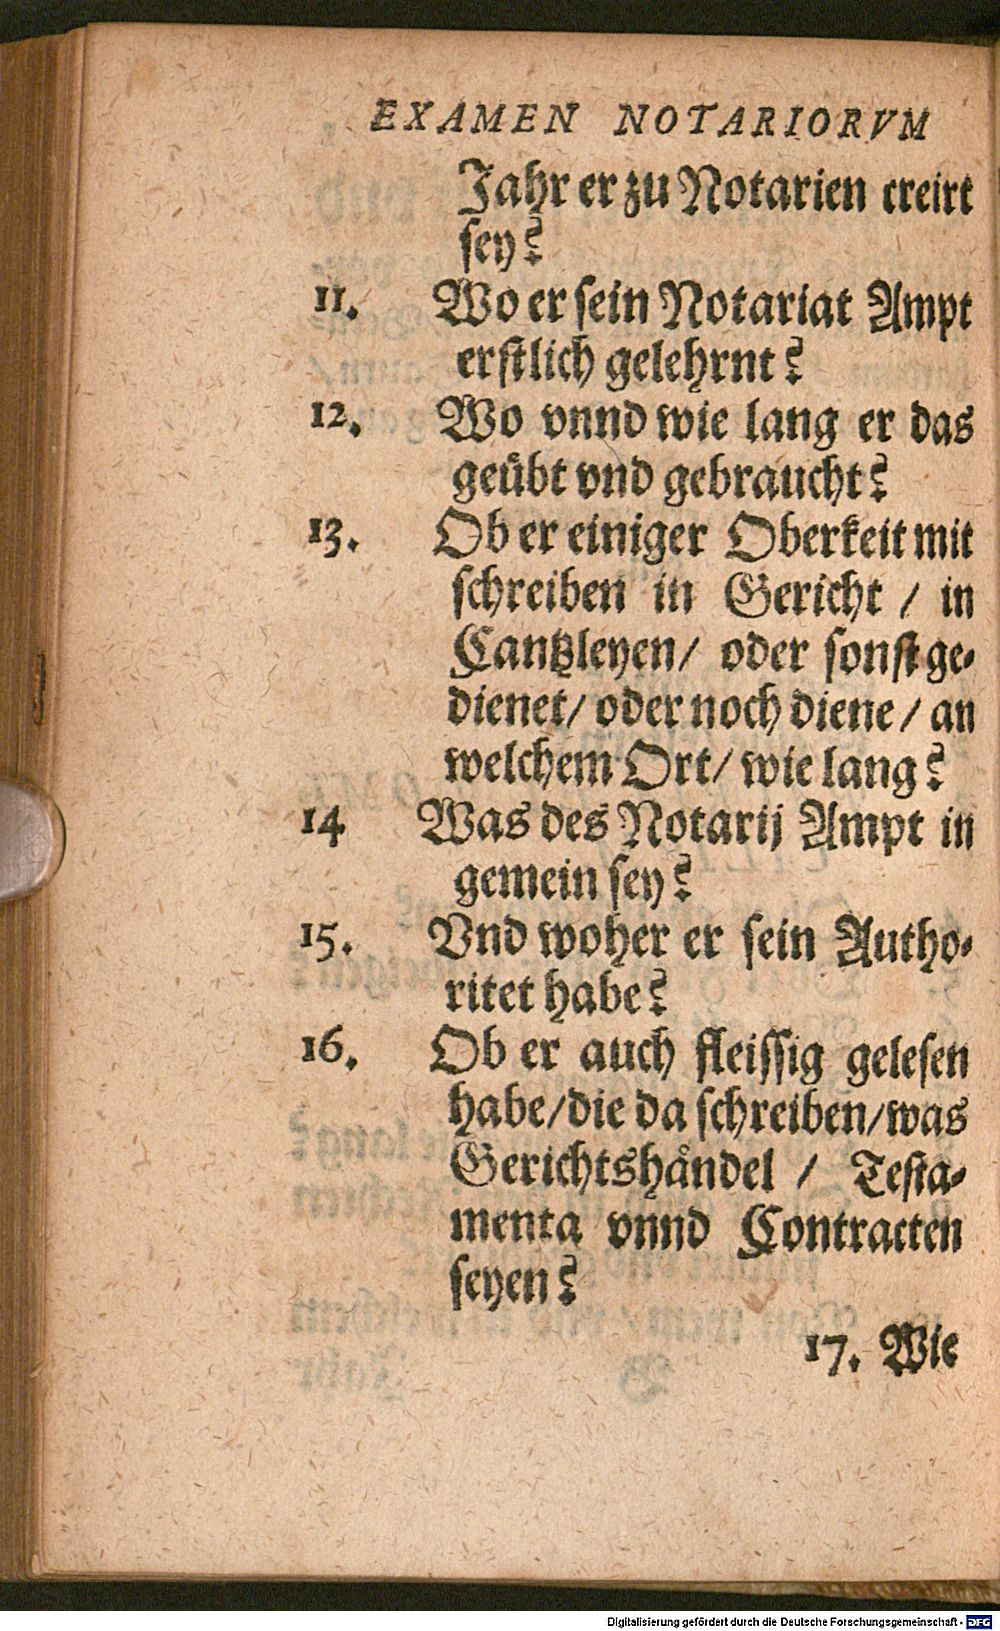 EXAMEN NOTARIORVM
Jahr er zu Notarien creirt
sey?
11. Wo er sein Notariat Ampt
erstlich gelehrnt?
12. Wo vnnd wie lang er das
geübt vnd gebraucht?
13. Ob er einiger Oberkeit mit
schreiben in Gericht / in
Cantzleyen/ oder sonst ge-
dienet/ oder noch diene / an
welchem Ort/ wie lang?
14 Was des Notarij Ampt in
gemein sey?
15. Vnd woher er sein Autho-
ritet habe?
16. Ob er auch fleissig gelesen
habe/die da schreiben/was
Gerichtshåndel / Testa-
menta vnnd Contracten
seyen?
17. Wie
Digitalisierung gefördert durch die Deutsche Forschungsgemeinschaft - DFG